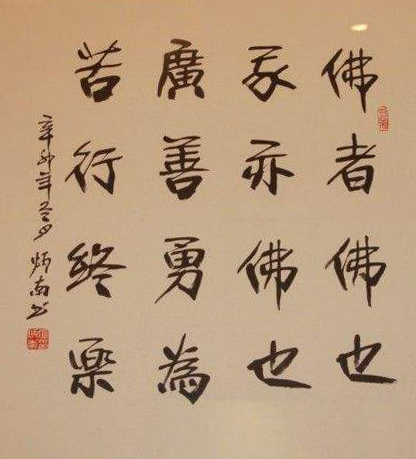 佛者佛也
我亦佛也
廣善勇為
苦行終樂
辛卯年冬月炳南书